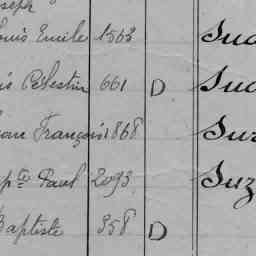 oseph
ouis Emile 1563 Sud
is Célestin 661 D Sud
ean François 1868 Suz
pte Paul 2093 Suz
Baptiste 358 D